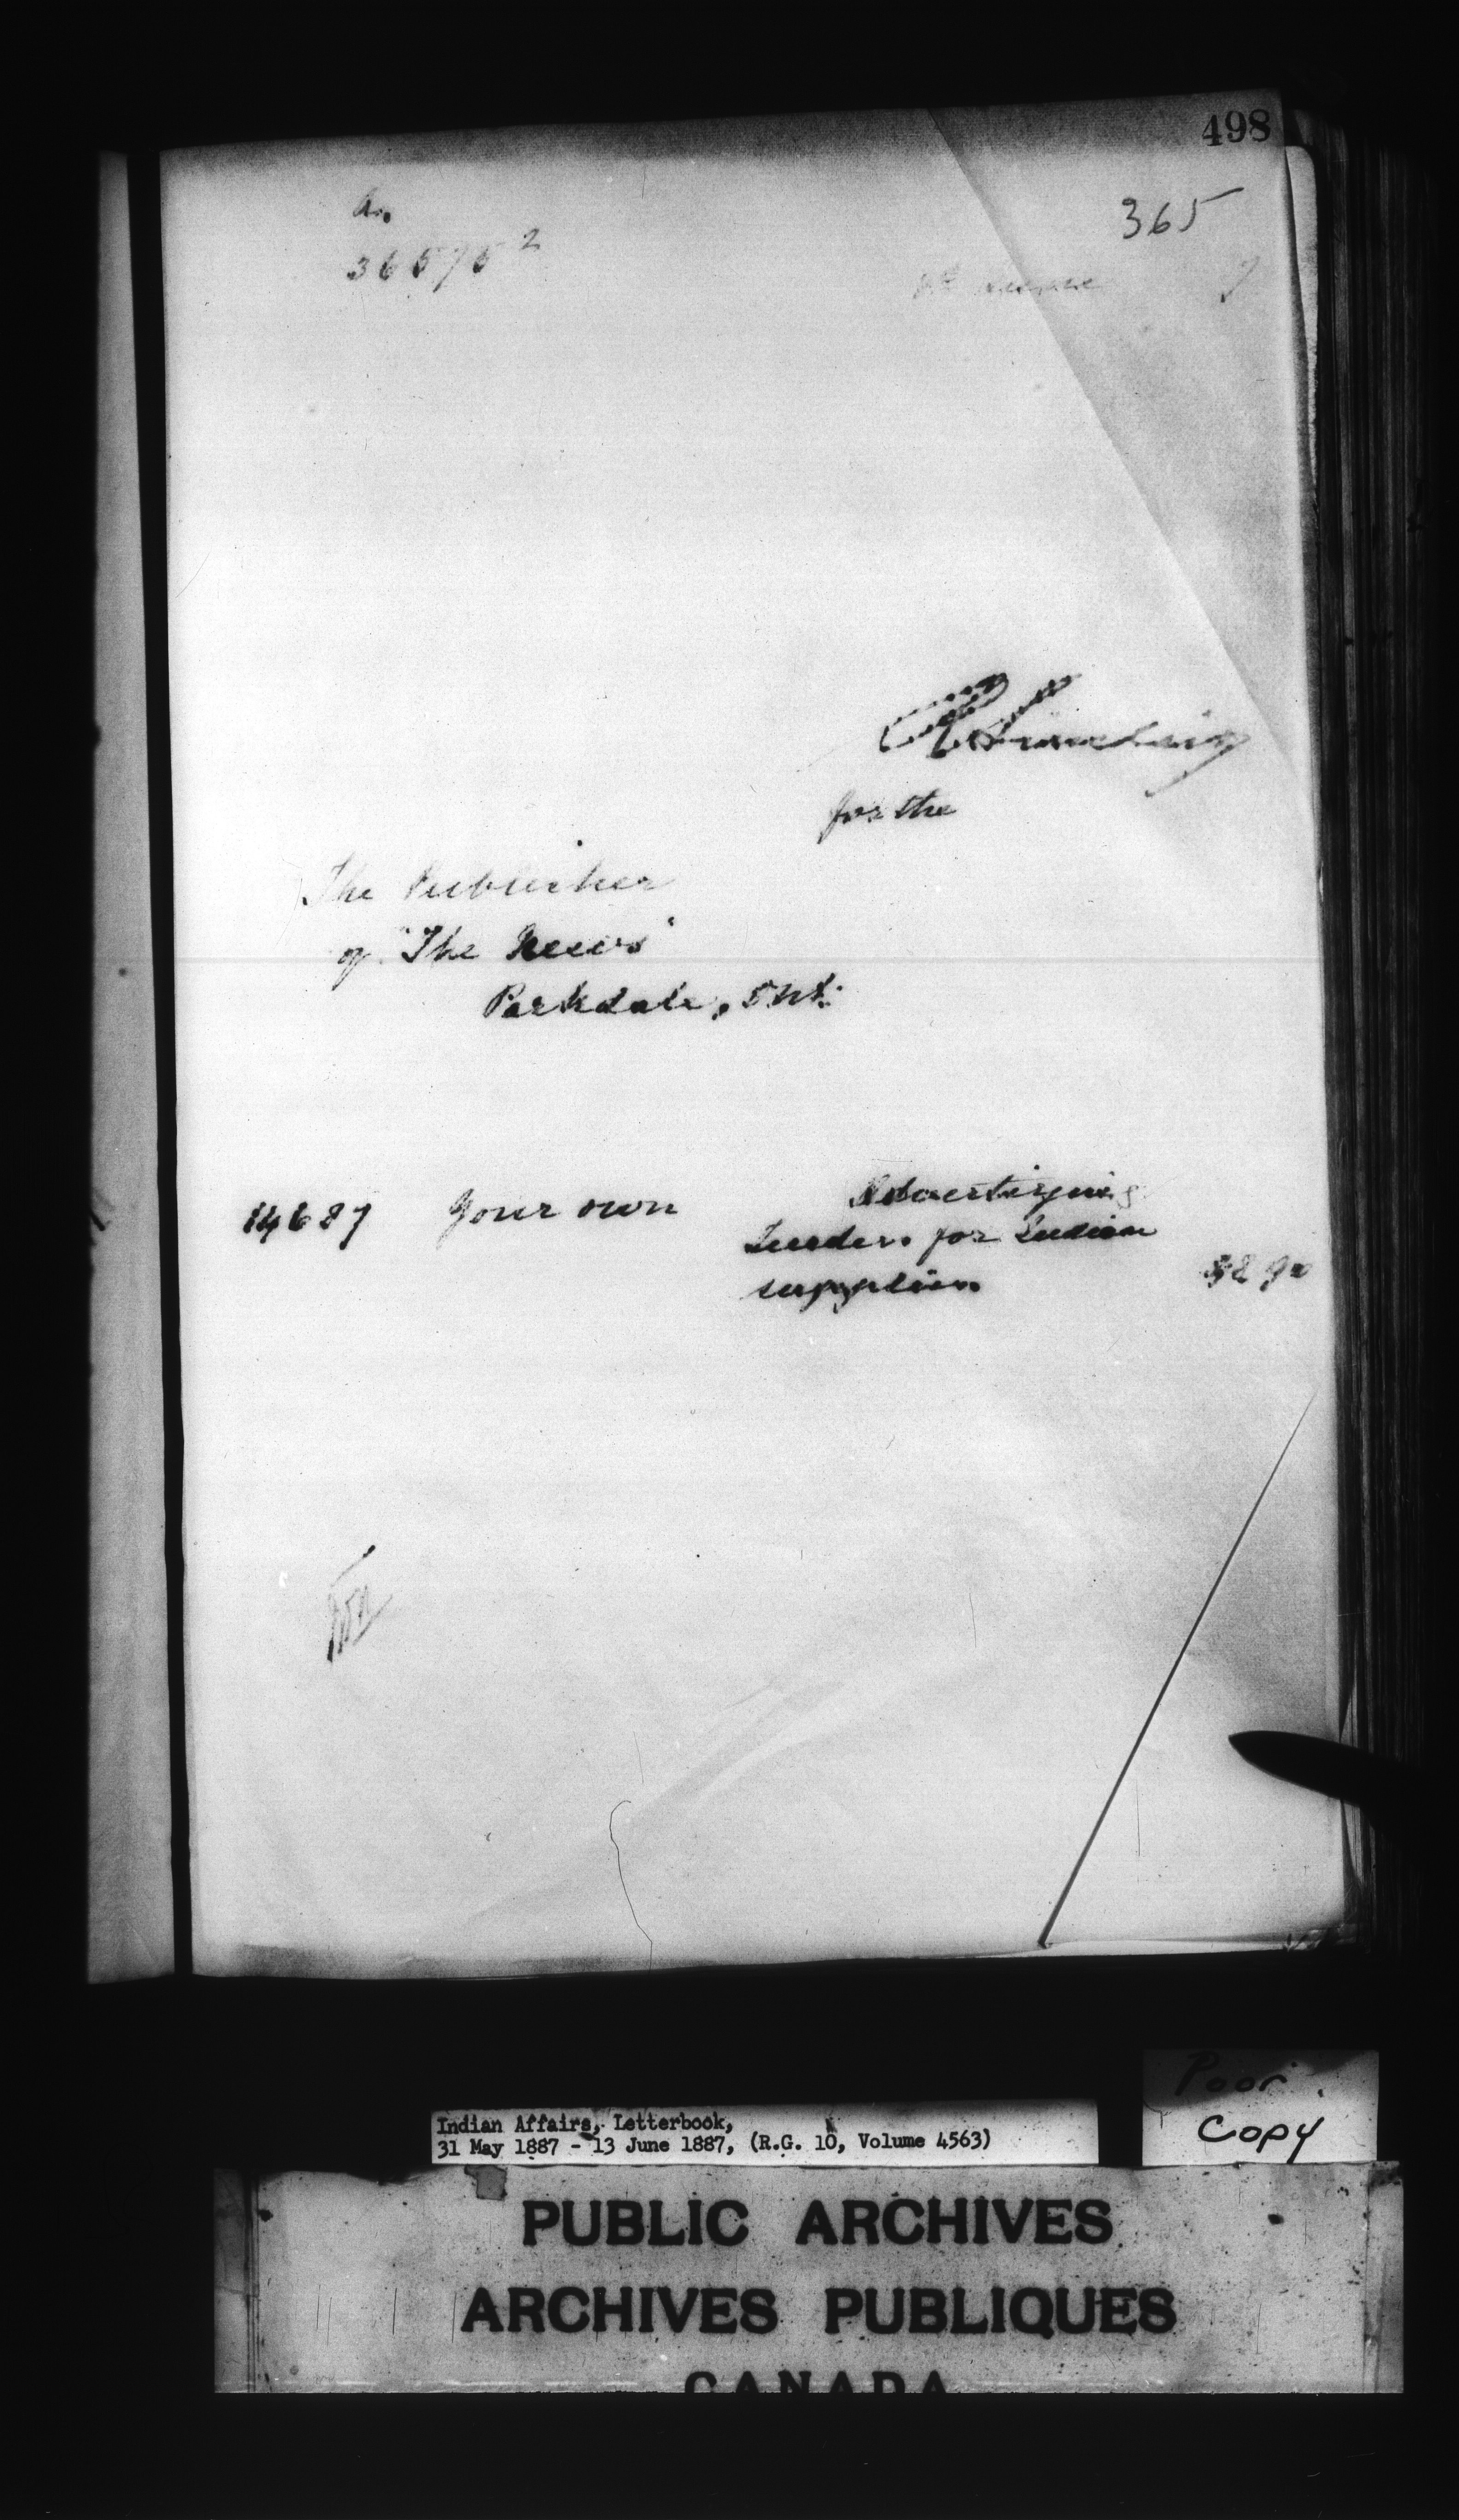 498
365
36575 2
for the
The Publisher
of "The News"
Parkdale, Ont.
14687 Your own Advertising
Tenders for Indian
supplies
Poor
Copy
Indian Affairs, Letterbook,
31 May 1887 - 13 June 1887, (R.G. 10, Volume 4563)
PUBLIC ARCHIVES
ARCHIVES PUBLIQUES
CANADA